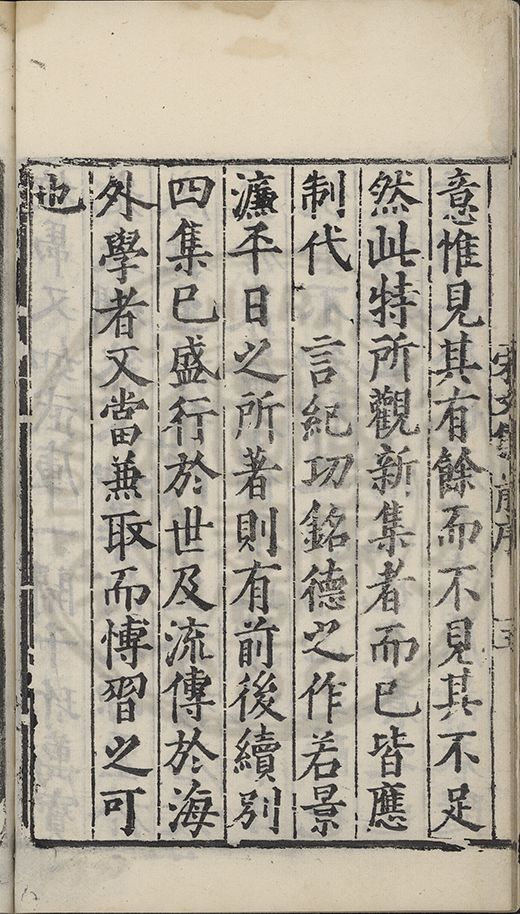 意惟見其有餘而不見其不足
然此特所觀新集者而已皆應
制代　言紀功銘德之作若景
濂平日之所著則有前後續別
四集已盛行於世及流傳於海
外學者又當兼取而博習之可
也